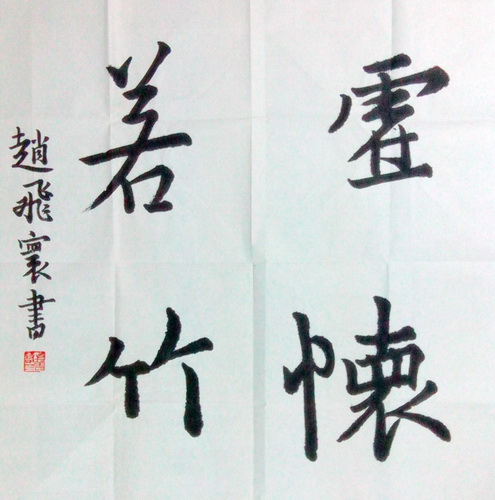 虚懷
若竹
趙飛寰書